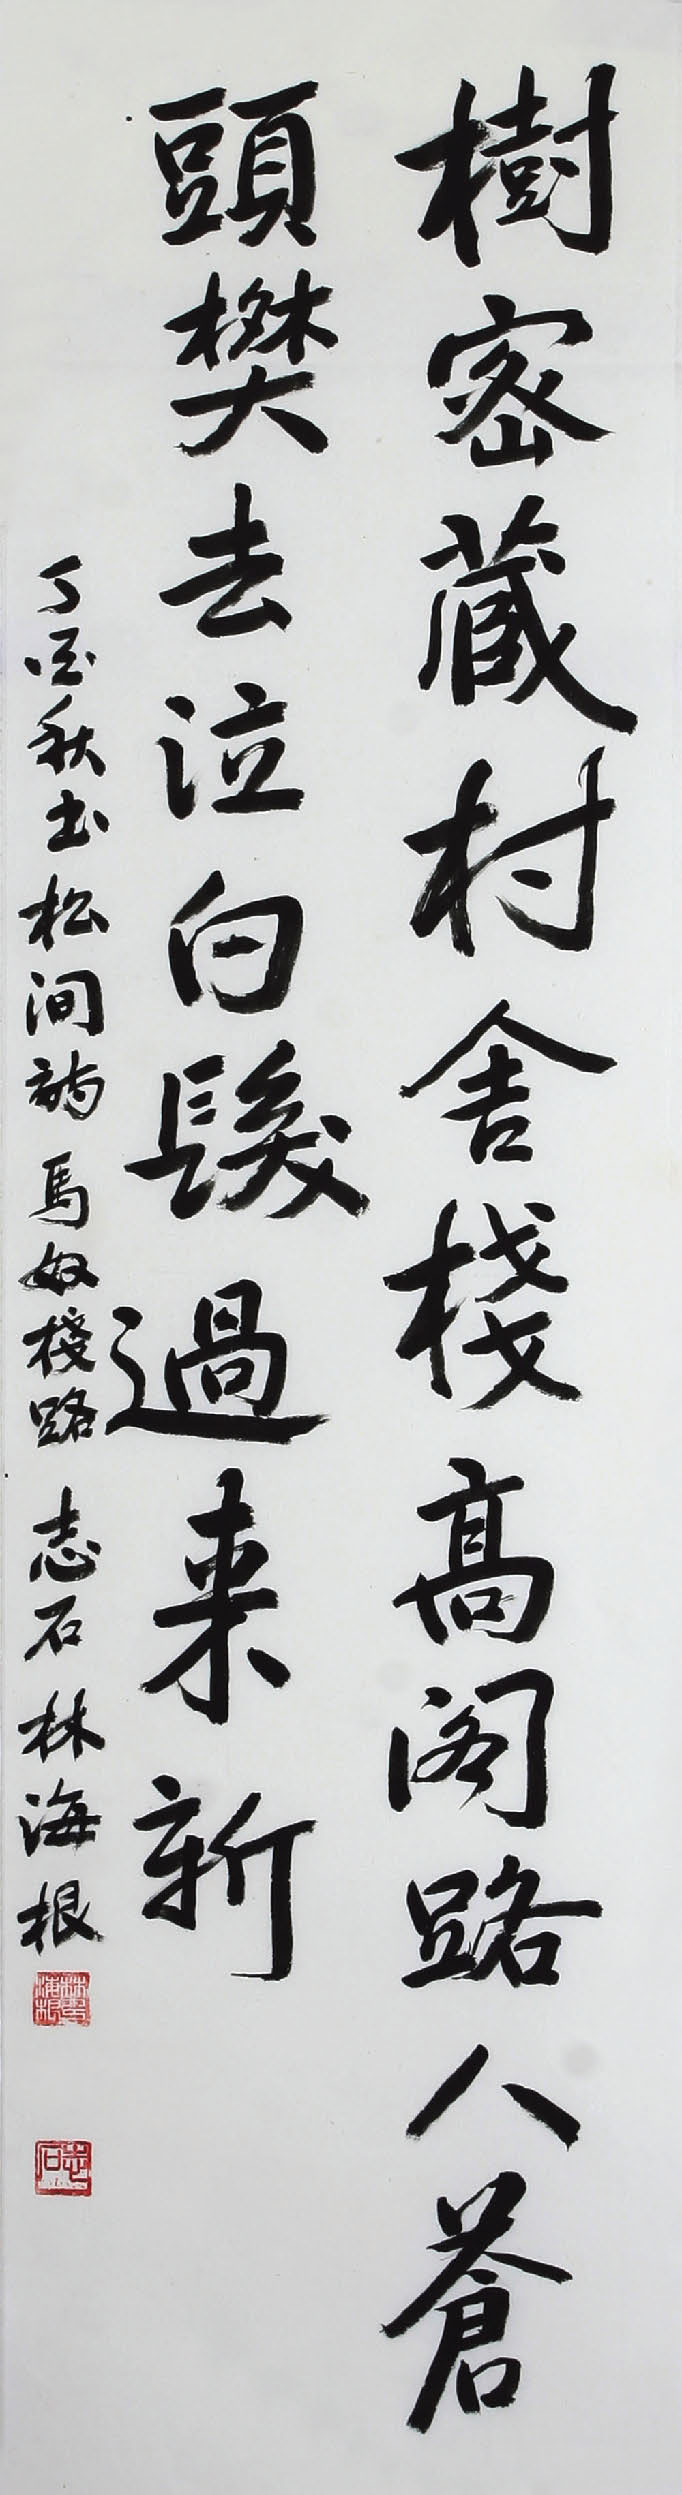 樹密藏村舍栈高阁路人蒼
頭樊去泣白髮過来新
丁酉秋书松涧詩馬奴棧路志石林海根
林海根
志石